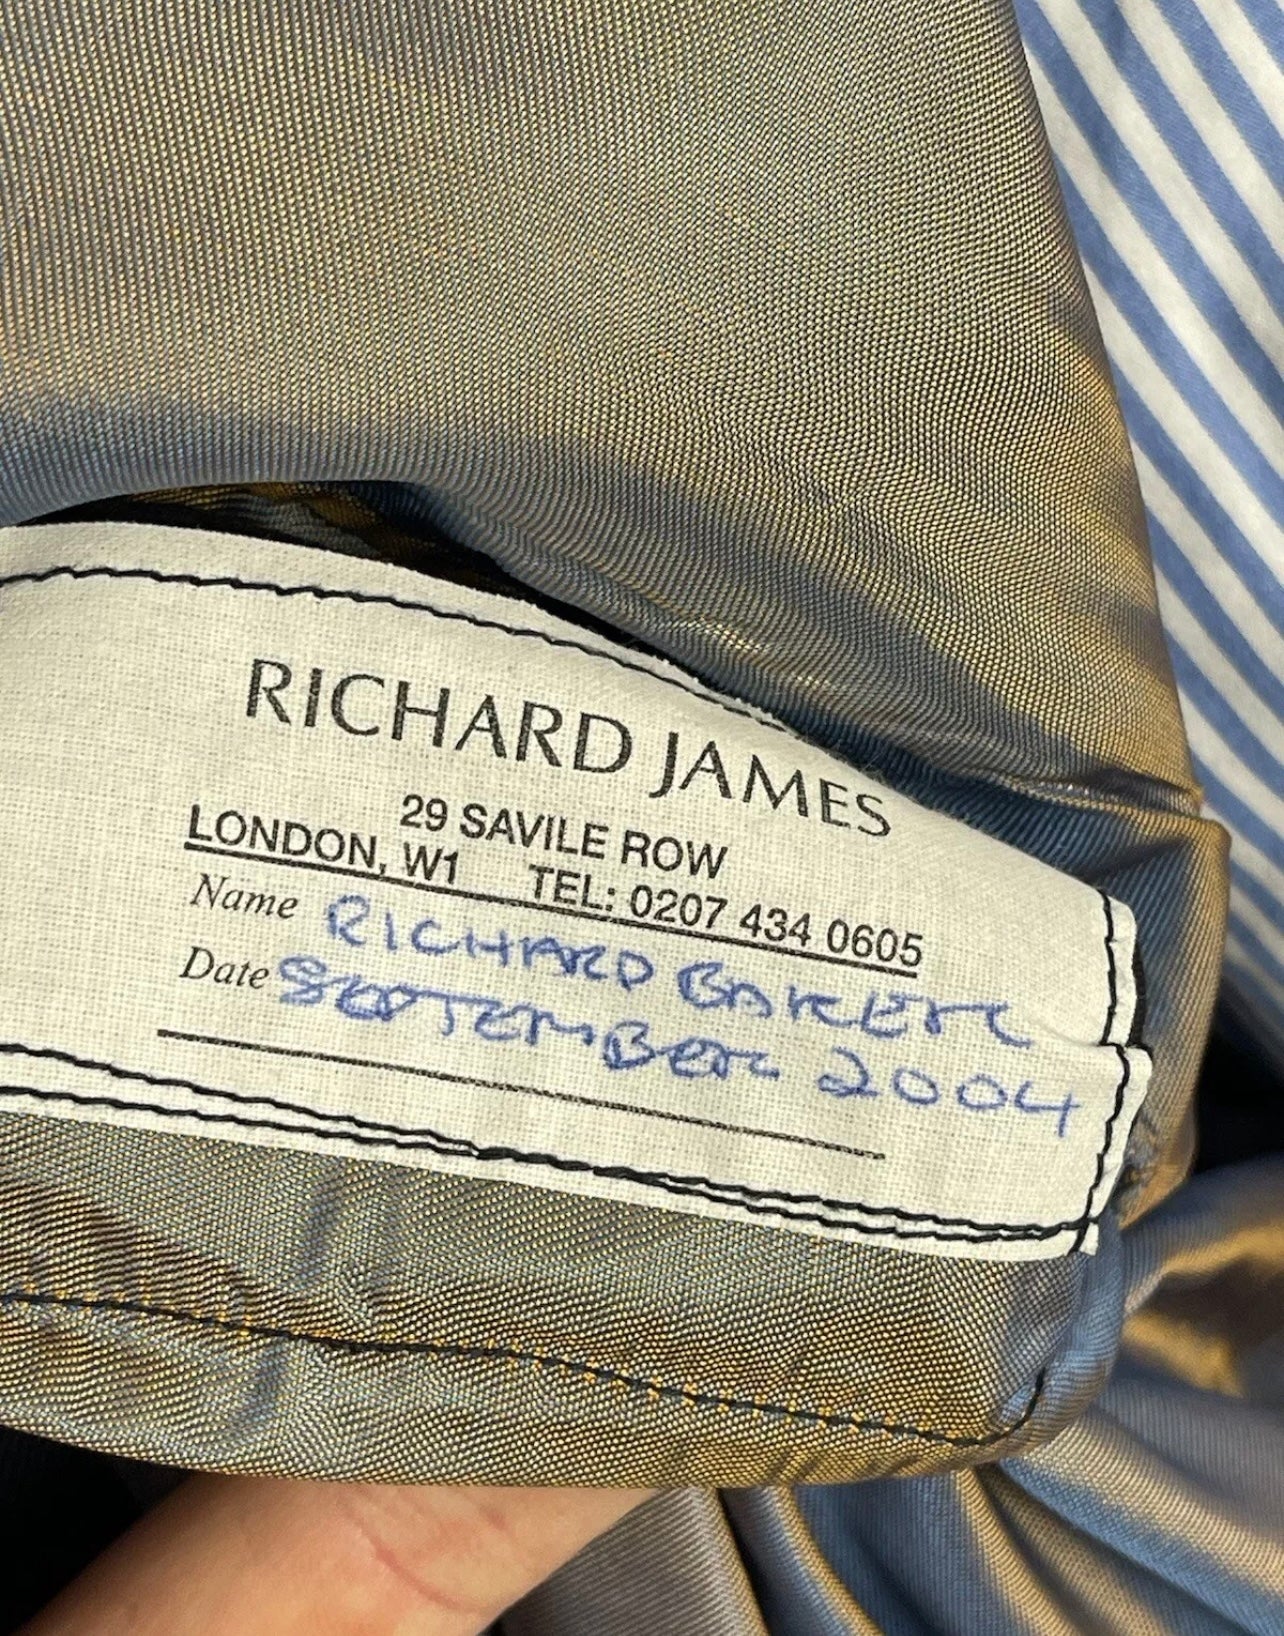 RICHARD JAMES
29 SAVILE ROW
LONDON, W1 TEL: 0207 434 0605
Name RICHARD BAKER
Date SEPTEMBER 2004